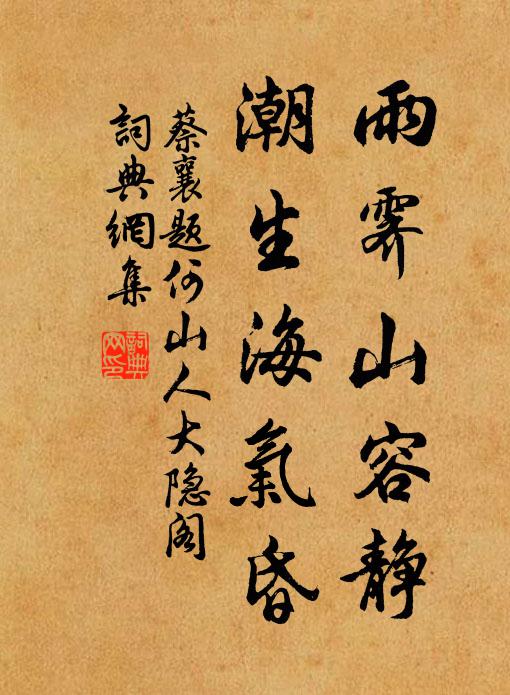 雨霁山容静
潮生海氣昏
蔡襄题何山人大隐阁
詞典網集
詞典
网印